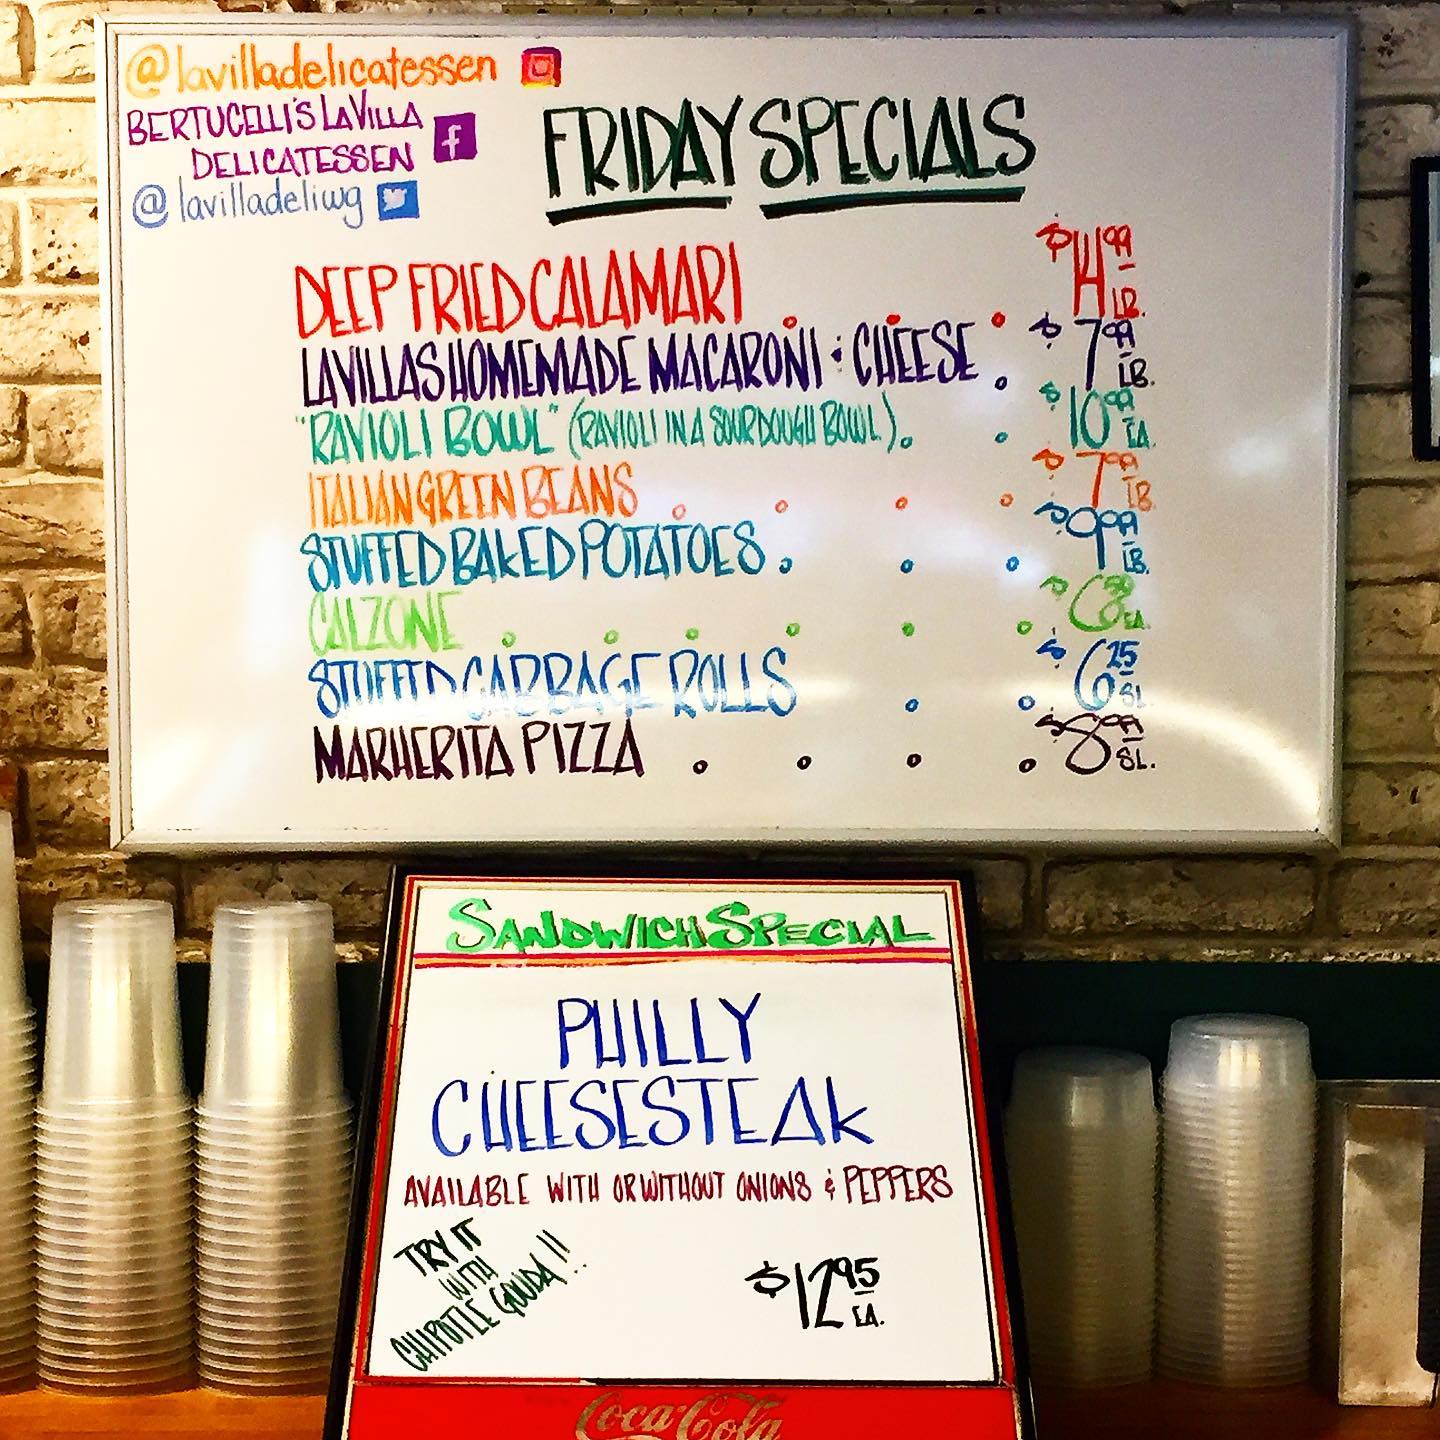 @lavilladelicatessen
BERTUCELLI'S LAVILLA
DELICATESSEN
@lavilladeliwg
FRIDAY SPECIALS
DEEP FRIED CALAMARI . . . $14.99 LB.
LAVILLAS HOMEMADE MACARONI & CHEESE . $7.99 LB.
"RAVIOLI BOWL" (RAVIOLI IN A SOURDOUGH BOWL) . . $10.99 EA.
ITALIAN GREEN BEANS . . . . $7.99 LB.
STUFFED BAKED POTATOES . . . $9.99 LB.
CALZONE . . . . . . EA.
STUFFED CABBAGE ROLLS . . $6.25 SL.
MARHERITA PIZZA . . . . $8.99 SL.
SANDWICH SPECIAL
PHILLY
CHEESESTEAK
AVAILABLE WITH OR WITHOUT ONIONS & PEPPERS
TRY IT
WITH
CHIPOTLE GOUDA!!
$12.95 EA.
Coca-Cola